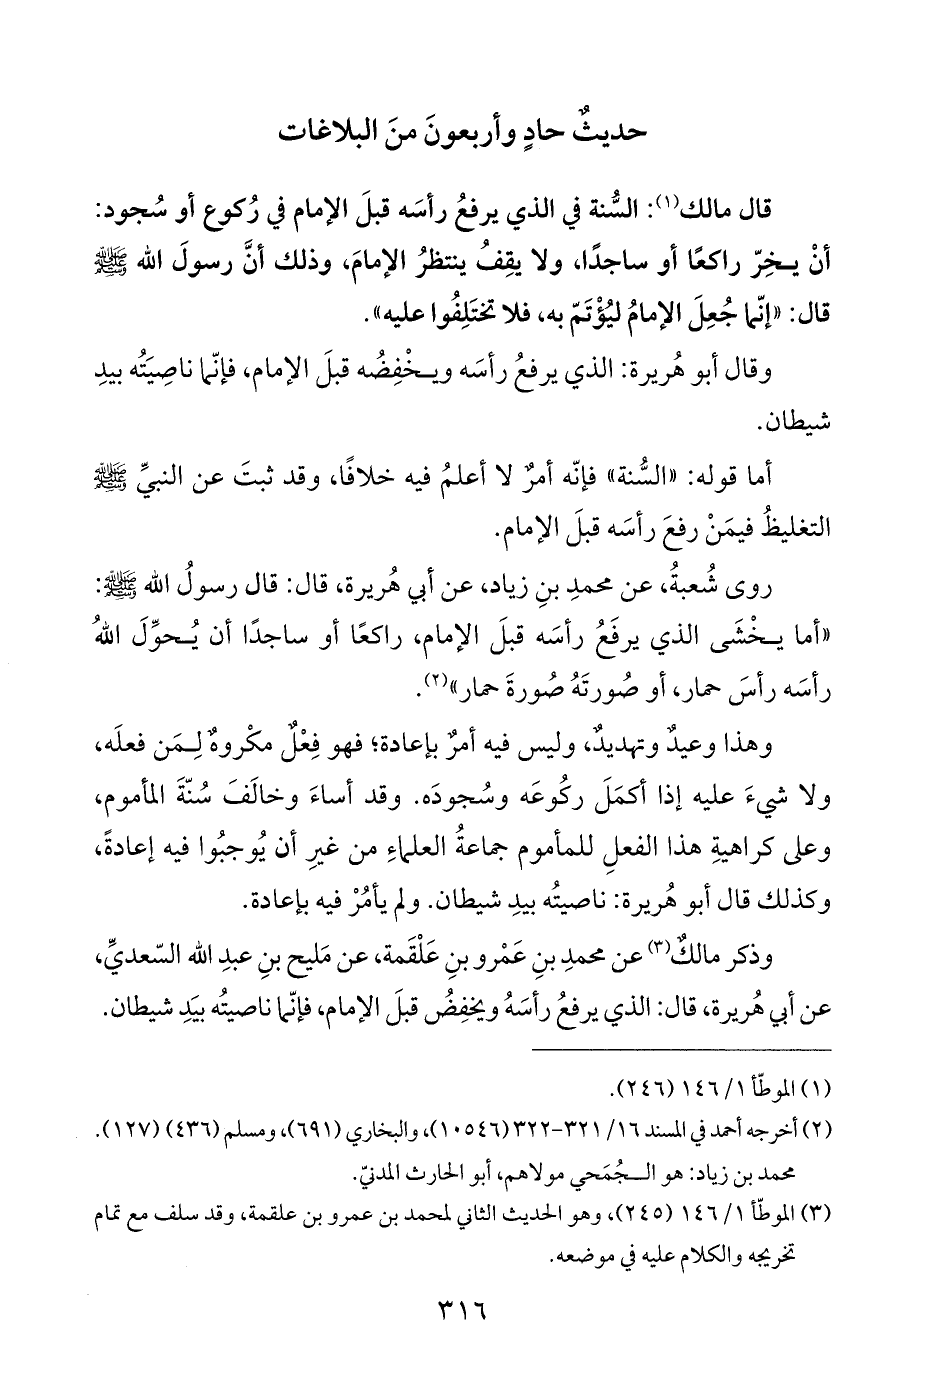 حديثٌ حادٍ وأربعونَ منَ البلاغات
قال مالك(١): السُّنة في الذي يرفعُ رأسَه قبلَ الإمام في رُكوع أو سُجود:
أنْ يـخِرّ راكعًا أو ساجدًا، ولا يقِفُ ينتظرُ الإمامَ، وذلك أنَّ رسولَ الله ﷺ
قال: «إنّما جُعِلَ الإمامُ ليُؤْتَمّ به، فلا تختَلِفُوا عليه».
وقال أبو هُريرة: الذي يرفعُ رأسَه ويـخْفِضُه قبلَ الإمام، فإنّما ناصِيَتُه بيدِ
شيطان.
أما قوله: «السُّنة» فإنّه أمرٌ لا أعلمُ فيه خلافًا، وقد ثبتَ عن النبيِّ ﷺ
التغليظُ فيمَنْ رفعَ رأسَه قبلَ الإمام.
روى شُعبةُ، عن محمدِ بنِ زياد، عن أبي هُريرة، قال: قال رسولُ الله ﷺ:
«أما يـخْشَى الذي يرفَعُ رأسَه قبلَ الإمام، راكعًا أو ساجدًا أن يُـحوِّلَ اللهُ
رأسَه رأسَ حمار، أو صُورتَهُ صُورةَ حمار»(٢).
وهذا وعيدٌ وتهديدٌ، وليس فيه أمرٌ بإعادة؛ فهو فِعْلٌ مكْروهٌ لِـمَن فعلَه،
ولا شيءَ عليه إذا أكمَلَ ركُوعَه وسُجودَه. وقد أساءَ وخالَفَ سُنّةَ المأموم،
وعلى كراهيةِ هذا الفعلِ للمأموم جماعةُ العلماءِ من غيرِ أن يُوجبُوا فيه إعادةً،
وكذلك قال أبو هُريرة: ناصيتُه بيدِ شيطان. ولم يأمُرْ فيه بإعادة.
وذكر مالكٌ(٣) عن محمدِ بنِ عَمْرو بنِ عَلْقَمة، عن مَليح بنِ عبدِ الله السّعديِّ،
عن أبي هُريرة، قال: الذي يرفعُ رأسَهُ ويخفِضُ قبلَ الإمام، فإنّما ناصيتُه بيَدِ شيطان.
(١) الموطّأ ١/ ١٤٦ (٢٤٦).
(٢) أخرجه أحمد في المسند ١٦/ ٣٢١-٣٢٢ (١٠٥٤٦)، والبخاري (٦٩١)، ومسلم (٤٣٦) (١٢٧).
محمد بن زياد: هو الـجُمَحي مولاهم، أبو الحارث المدنيّ.
(٣) الموطّأ ١/ ١٤٦ (٢٤٥)، وهو الحديث الثاني لمحمد بن عمرو بن علقمة، وقد سلف مع تمام
تخريجه والكلام عليه في موضعه.
٣١٦